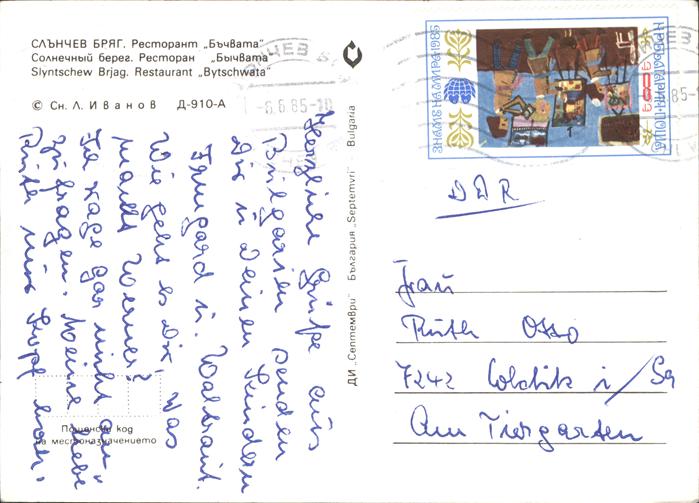 СЛЪНЧЕВ БРЯГ. Ресторант „Бъчвата"
Солнечный берег. Ресторан „Бычвата"
Slyntschew Brjag. Restaurant "Bytschwata"
© Сн. Л. Иванов Д-910-А
Herzliche Grüße aus
Bulgarien senden
Dir u. Deinen Kindern
Irmgard u. Waltraut.
Wie geht es Dir, was
macht Werner?
Ich wage gar nicht an-
zufragen. Meine liebe
Ruth nur Kopf hoch.
Пощенски код
на местоназначението
ДИ „Септември" България „Septemvri" Bulgaria
ЗНАМЕ НА МИРА 1985
НР БЪЛГАРИЯ · ПОЩА
-6.6.85-10
DDR
Frau
Ruth Otto
7242 Colditz i/Sa
Am Tiergarten